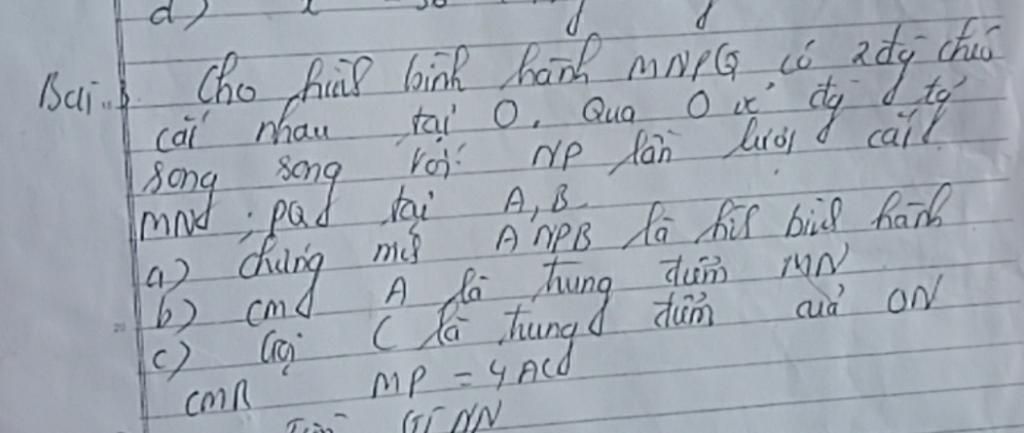 d)
Bài.. Cho hình bình hành MNPQ có 2 đg chéo
cắt nhau tại O. Qua O vẽ đg tg
song song với NP lần lượt cắt
MN ; PQ tại A, B
a) chứng mg ANPB là hình bình hành
b) cm A là trung điểm MN
c) Gọi C là trung điểm của ON
CMR MP = 4AC
GTNN